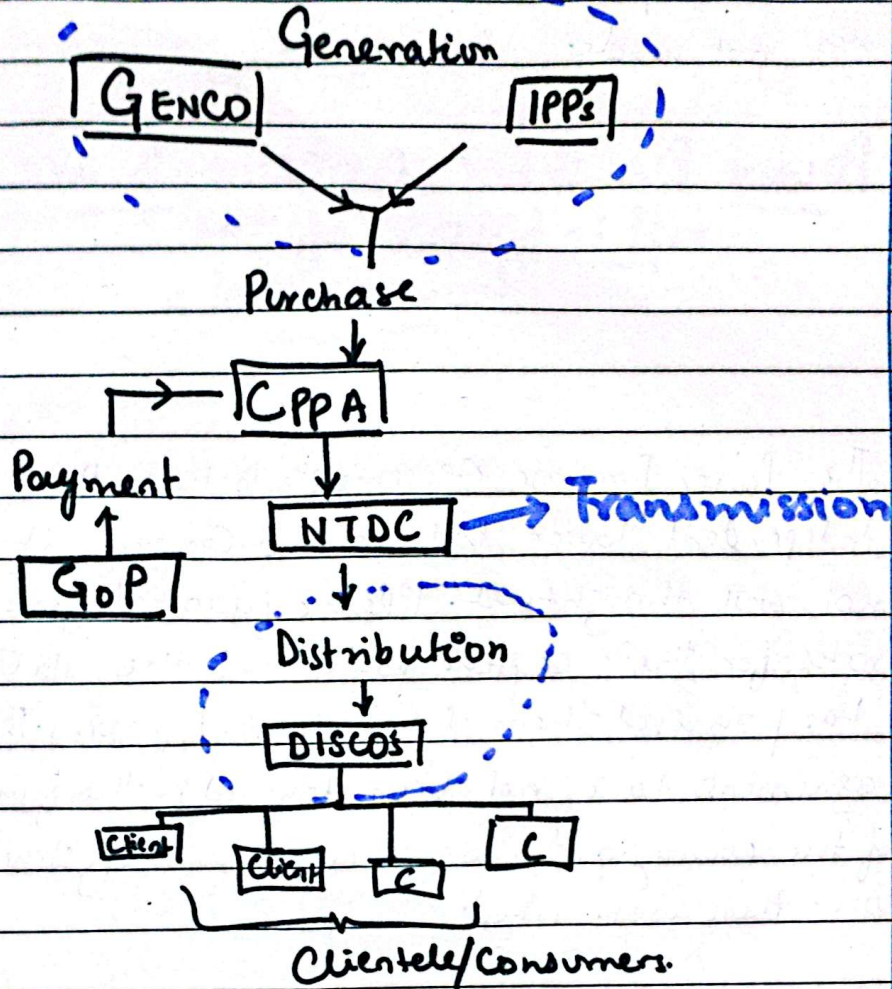 Generation
GENCO
IPP's
Purchase
CPPA
Payment
NTDC
Transmission
GoP
Distribution
DISCO's
Client
Client
C
C
Clientele/Consumers.